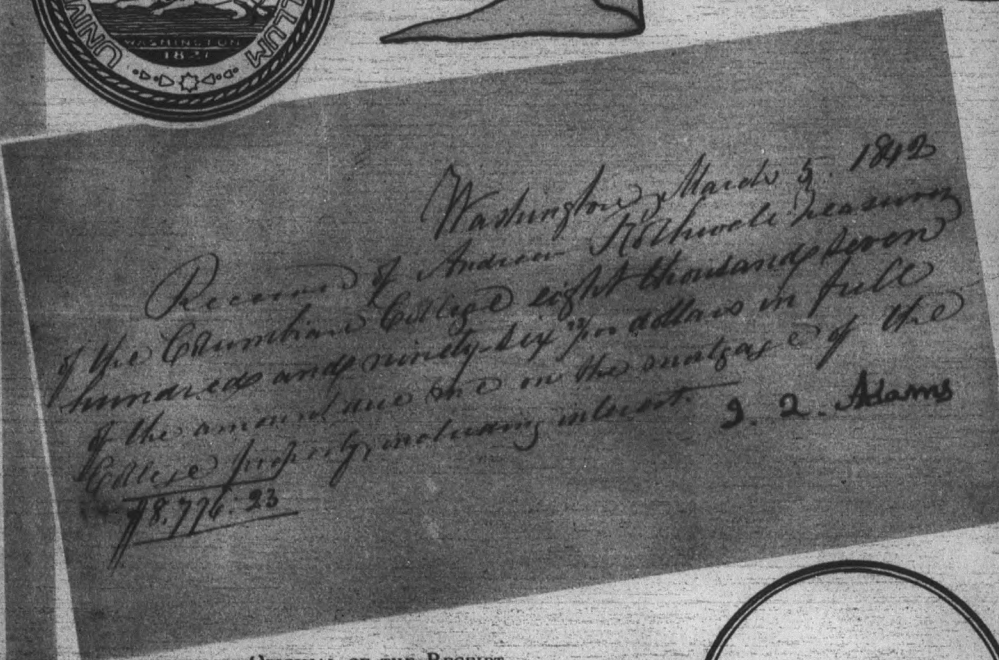 LLUM UNIV
WASHINGTON
1821
Washington March 5. 1842
Received of Andrew Rothwell treasurer
of the Columbian College eight thousand seven
hundred and ninety-six 23/100 dollars in full
of the amount due me on the mortgage of the
College property, including interest.
J. Q. Adams
$8.796.23
ORIGINAL OF THE RECEIPT